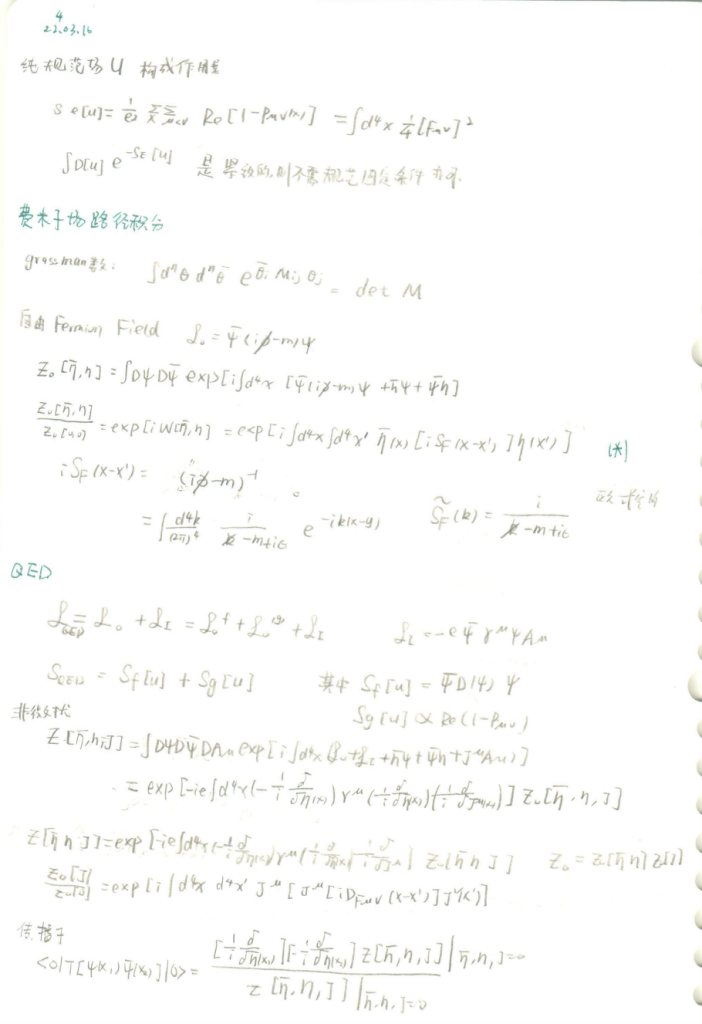 4
23.03.16
纯规范场 U 构成作用量
S_E[U] = \frac{1}{e^2} \sum_x \sum_{\mu<\nu} Re[1-P_{\mu\nu}(x)] = ∫d⁴x \frac{1}{4}[F_{\mu\nu}]²
∫D[U] e^{-S_E[U]} 是 的,则不需规范固定条件 亦可.
费米子场路径积分
grassman数: ∫dⁿθ dⁿ\bar{θ} e^{\bar{θ}_i M_{ij} θ_j} = det M
自由 Fermion Field ℒ₀ = \bar{ψ}(i∂̸-m)ψ
Z₀[\bar{η},η] = ∫DψD\bar{ψ} exp[i∫d⁴x [\bar{ψ}(i∂̸-m)ψ + \bar{η}ψ + \bar{ψ}η]
\frac{Z₀[\bar{η},η]}{Z₀[0,0]} = exp[iW[\bar{η},η] = exp[i∫d⁴x∫d⁴x' \bar{η}(x) [iS_F(x-x')]η(x')] (*)
iS_F(x-x') = (i∂̸-m)^{-1}
= ∫\frac{d⁴k}{(2π)⁴} \frac{i}{k̸-m+iε} e^{-ik(x-y)} \tilde{S_F}(k) = \frac{i}{k̸-m+iε}
QED
ℒ_{QED} = ℒ₀ + ℒ_I = ℒ₀^f + ℒ₀^g + ℒ_I ℒ_I = -e\bar{ψ}γ^μψA_μ
S_{QED} = S_f[U] + S_g[U] 其中 S_f[U] = \bar{ψ}D(U)ψ
S_g[U] ∝ Re(1-P_{\mu\nu})
非微扰
Z[\bar{η},η,J] = ∫DψD\bar{ψ}DA_μ exp[i∫d⁴x(ℒ₀+ℒ_I+\bar{η}ψ+\bar{ψ}η+J^μA_μ)]
= exp[-ie∫d⁴x(-\frac{1}{i}\frac{δ}{δη(x)})γ^μ(\frac{1}{i}\frac{δ}{δ\bar{η}(x)})(\frac{1}{i}\frac{δ}{δJ^μ(x)})] Z₀[\bar{η},η,J]
Z[\bar{η} η J] = exp[-ie∫d⁴x(-\frac{1}{i}\frac{δ}{δη(x)})γ^μ(\frac{1}{i}\frac{δ}{δ\bar{η}(x)})\frac{1}{i}\frac{δ}{δJ^μ}] Z₀[\bar{η} η J] Z₀ = Z[\bar{η} η] Z[J]
\frac{Z₀[J]}{Z₀[0]} = exp[i∫d⁴x d⁴x' J^μ[J^μ[iD_{Fμν}(x-x')]J^ν(x')]
传播子
<0|T[ψ(x₁)\bar{ψ}(x₂)]|0> = \frac{[\frac{1}{i}\frac{δ}{δ\bar{η}(x₁)}][-\frac{1}{i}\frac{δ}{δη(x₂)}]Z[\bar{η},η,J]|_{\bar{η},η,J=0}}{Z[\bar{η},η,J]|_{\bar{η},η,J=0}}